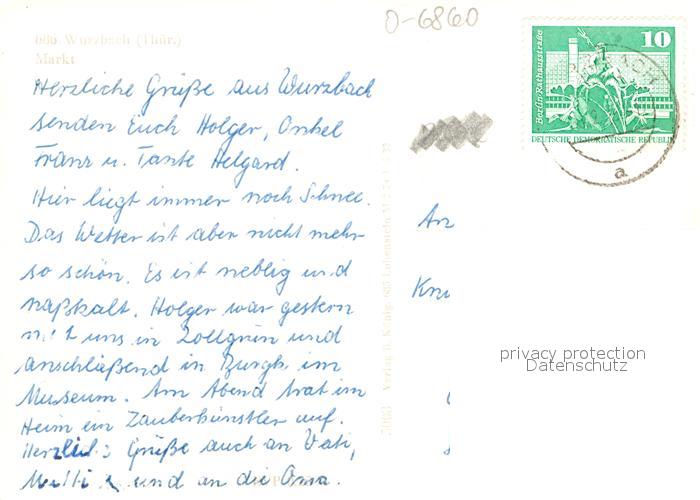 0-6860
686 Wurzbach (Thür.)
Markt
Herzliche Grüße aus Wurzbach
senden Euch Holger, Onkel
Franz u. Tante Helgard.
Hier liegt immer noch Schnee.
Das Wetter ist aber nicht mehr
so schön. Es ist neblig und
naßkalt. Holger war gestern
mit uns in Zollgrün und
anschließend in Burgk im
Museum. Am Abend trat im
Heim ein Zauberkünstler auf.
Herzlich Grüße auch an Vati,
Mutti und an die Oma.
Verlag R. König, 685 Lobenstein
10
Berlin, Rathausstraße
DEUTSCHE DEMOKRATISCHE REPUBLIK
a
An
privacy protection
Datenschutz